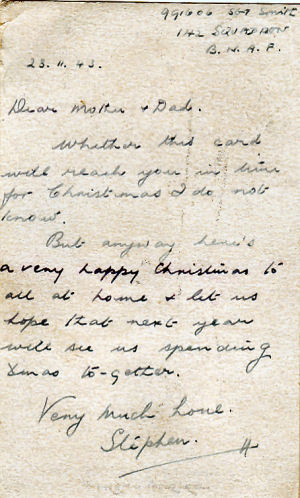 991606 SGT SMITE
142 SQUADRON
B.N.A.F.
23.11.43.
Dear Mother & Dad.
Whether this card
will reach you in time
for Christmas I do not
know.
But anyway here's
a very happy Christmas to
all at home & let us
hope that next year
will see us spending
Xmas to-gether.
Very much love.
Stephen.